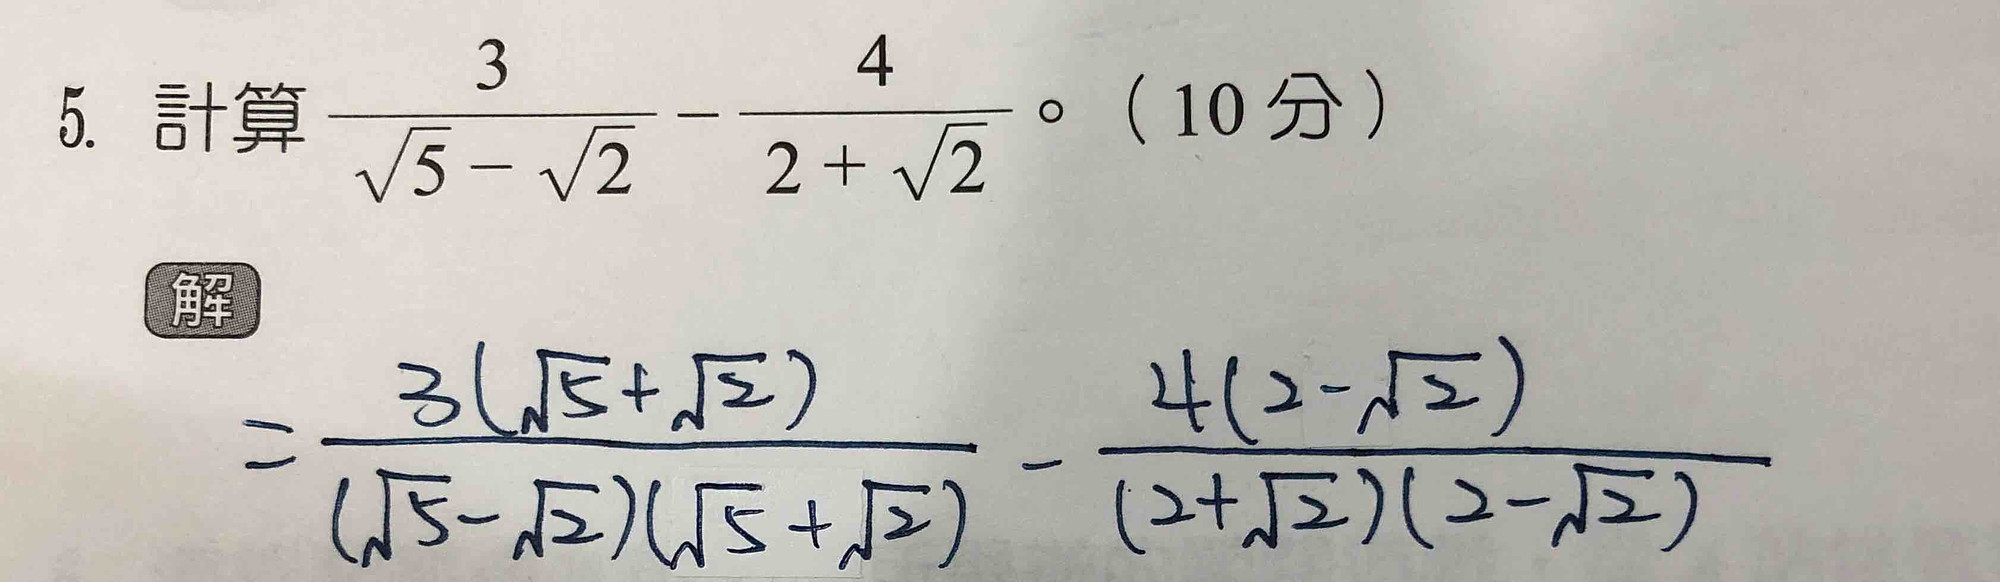 5. 計算 3/(√5 − √2) − 4/(2 + √2)。(10 分)
解
= 3(√5+√2)/((√5−√2)(√5+√2)) − 4(2−√2)/((2+√2)(2−√2))